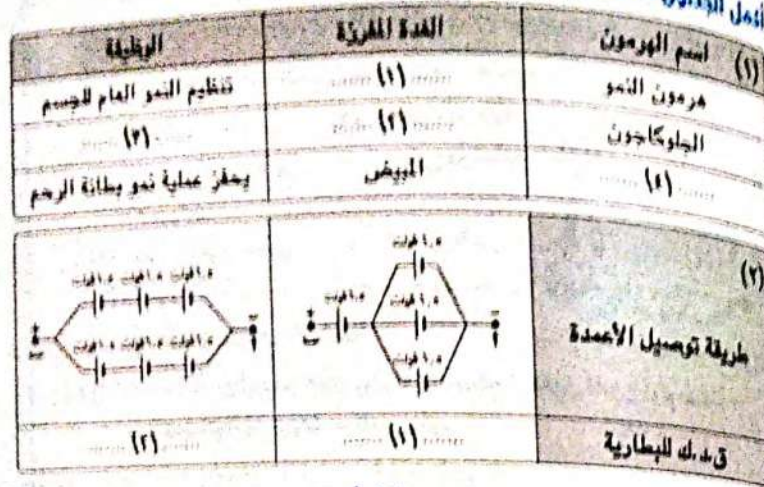 أكمل الجدولين
(١) اسم الهرمون الغدة المفرزة الوظيفة
هرمون النمو (١) تنظيم النمو العام للجسم
الجلوكاجون (٢) (٣)
(٤) المبيض يحفز عملية نمو بطانة الرحم
(٢)
طريقة توصيل الأعمدة
١,٥ فولت
١,٥ فولت ١,٥ فولت
١,٥ فولت
١,٥ فولت ١,٥ فولت ١,٥ فولت
١,٥ فولت ١,٥ فولت ١,٥ فولت
ق.د.ك للبطارية (١) (٢)